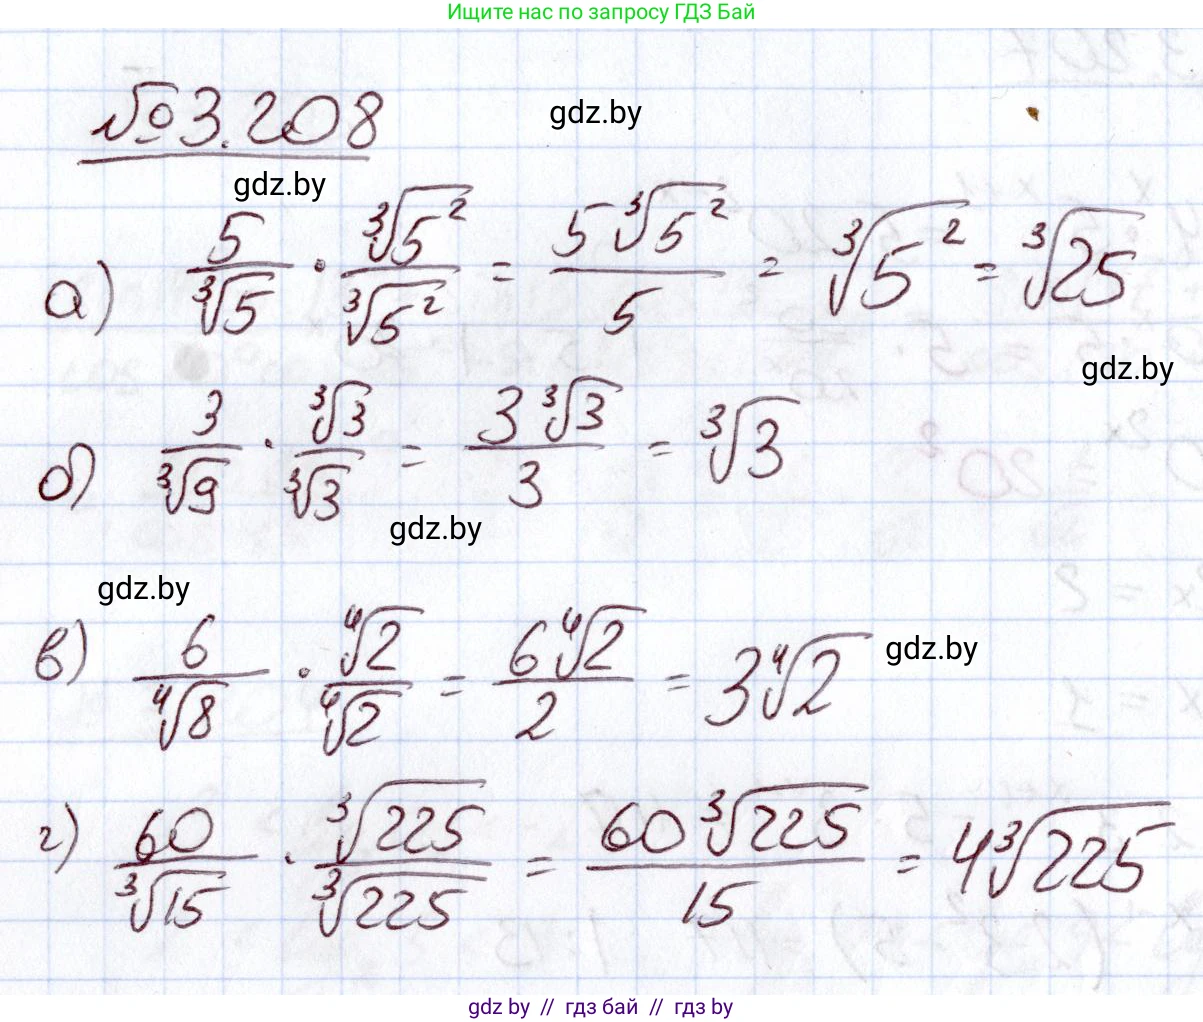 Ищите нас по запросу ГДЗ Бай
№3.208
gdz.by
gdz.by
а) 5/∛5 · ∛5²/∛5² = 5∛5²/5 = ∛5² = ∛25
gdz.by
б) 3/∛9 · ∛3/∛3 = 3∛3/3 = ∛3
gdz.by
gdz.by
в) 6/∜8 · ∜2/∜2 = 6∜2/2 = 3∜2
gdz.by
г) 60/∛15 · ∛225/∛225 = 60∛225/15 = 4∛225
gdz.by // гдз бай // гдз by